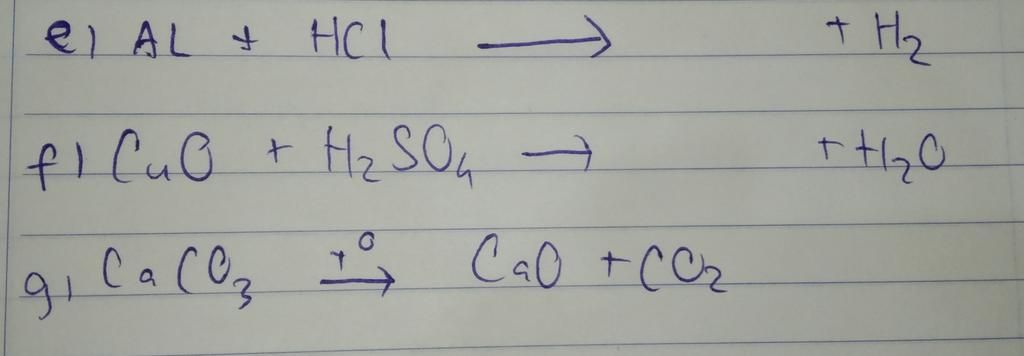 e) AL + HCl ⟶ + H₂
f) CuO + H₂SO₄ → + H₂O
g) CaCO₃ →^{t°} CaO + CO₂